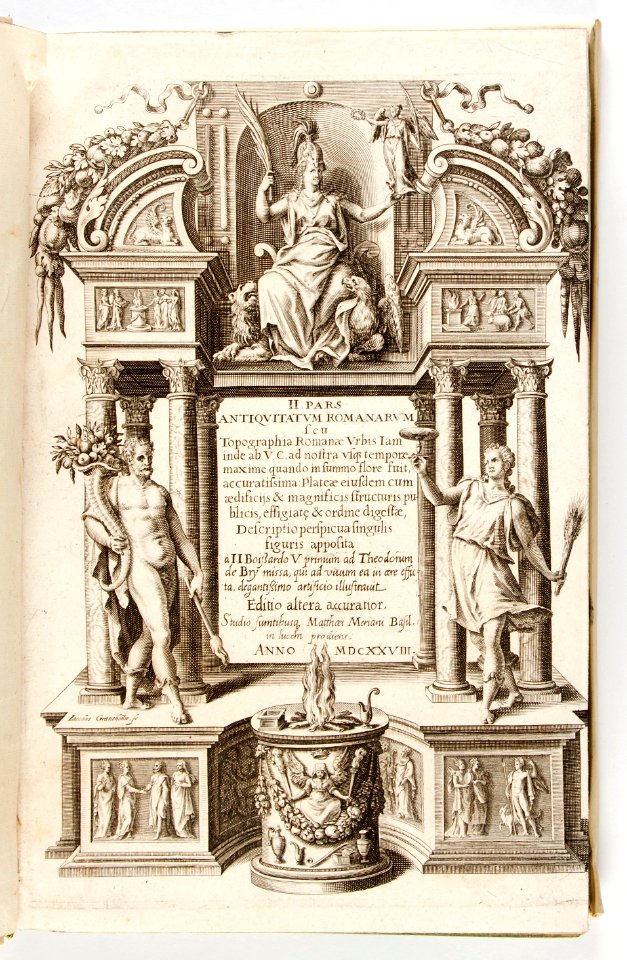 II. PARS
ANTIQVITATVM ROMANARVM
seu
Topographia Romanæ Vrbis Iam
inde ab V. C. ad nostra vsq; tempora,
maxime quando in summo flore fuit,
accuratissima: Plateæ eiusdem cum
ædificijs & magnificis structuris pu
blicis, effigiatę & ordine digestæ,
Descriptio perspicua singulis
figuris apposita
à II Boissardo V primum ad Theodorum
de Bry missa, qui ad vivum ea in ære effic
ta, elegantissimo artificio illustravit.
Editio altera accuratior,
Studio sumtibusq, Matthæi Meriani Basil.
in lucem prodiens.
ANNO MDCXXVIII.
Iacobus Granthome fe